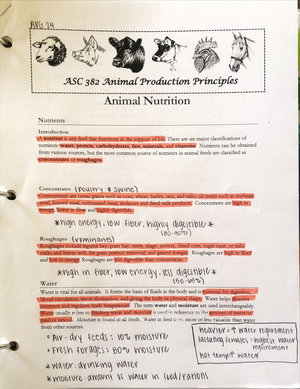 AVG 24
ASC 382 Animal Production Principles
Animal Nutrition
Nutrients
Introduction
A nutrient is any feed that functions in the support of life. There are six major classifications of
nutrients water, protein, carbohydrates, fats, minerals, and vitamins. Nutrients can be obtained
from various sources, but the most common source of nutrients in animal feeds are classified as
concentrates or roughages.
Concentrates (Poultry & Swine)
Concentrates are cereal grains such as corn, wheat, barley, oats, and milo; oil meals such as soybean
meal, linseed meal, cottonseed meal, molasses and dried milk products. Concentrates are high in
energy, lower in fiber and highly digestible.
*high energy, low fiber, highly digestible*
(80-90%)
Roughages (ruminants)
Roughages include legume hay, grass hay, straw, silage, stovers, (dried corn, sugar cane, or milo
stalks and leaves with the grain portion removed) and grazed forages. Roughages are high in fiber
and low in energy. Roughages are less digestible than concentrates.
*high in fiber, low energy, less digestible*
(50-65%)
Water
Water is vital for all animals. It forms the basis of fluids in the body and is essential for digestion,
blood circulation, waste elimination, and giving the body its physical shape. Water helps dissolve
nutrients and regulates body temperature. The term water and moisture are used interchangeably.
Water usually refers to drinking water and moisture is used in reference to the amount of water in
feed or rations. Moisture is found in all feeds. Water in feed is no more or less valuable than water
from other sources.
* Air-dry feeds: 10% moisture
* Fresh forages: 80% moisture
* water: drinking water
* moisture: amount of water in feed/rations
heavier = ↑ water requirement
lactating females = highest water
requirement
hot temp ↑ water